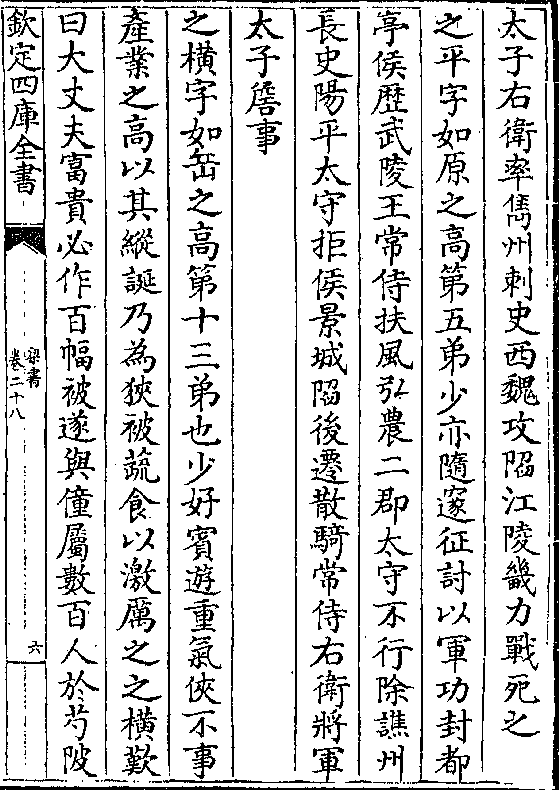 太子右衛率雋州刺史西魏攻陷江陵畿力戰死之
之平字如原之高第五弟少亦隨邃征討以軍功封都
亭侯歴武陵王常侍扶風弘農二郡太守不行除譙州
長史陽平太守拒侯景城陷後遷散騎常侍右衛將軍
太子詹事
之横字如岳之高第十三弟也少好賓遊重氣俠不事
產業之高以其縱誕乃為狹被蔬食以激厲之之横歎
曰大丈夫富貴必作百幅被遂與僮屬數百人於芍陂
欽定四庫全書
梁書
卷二十八
六